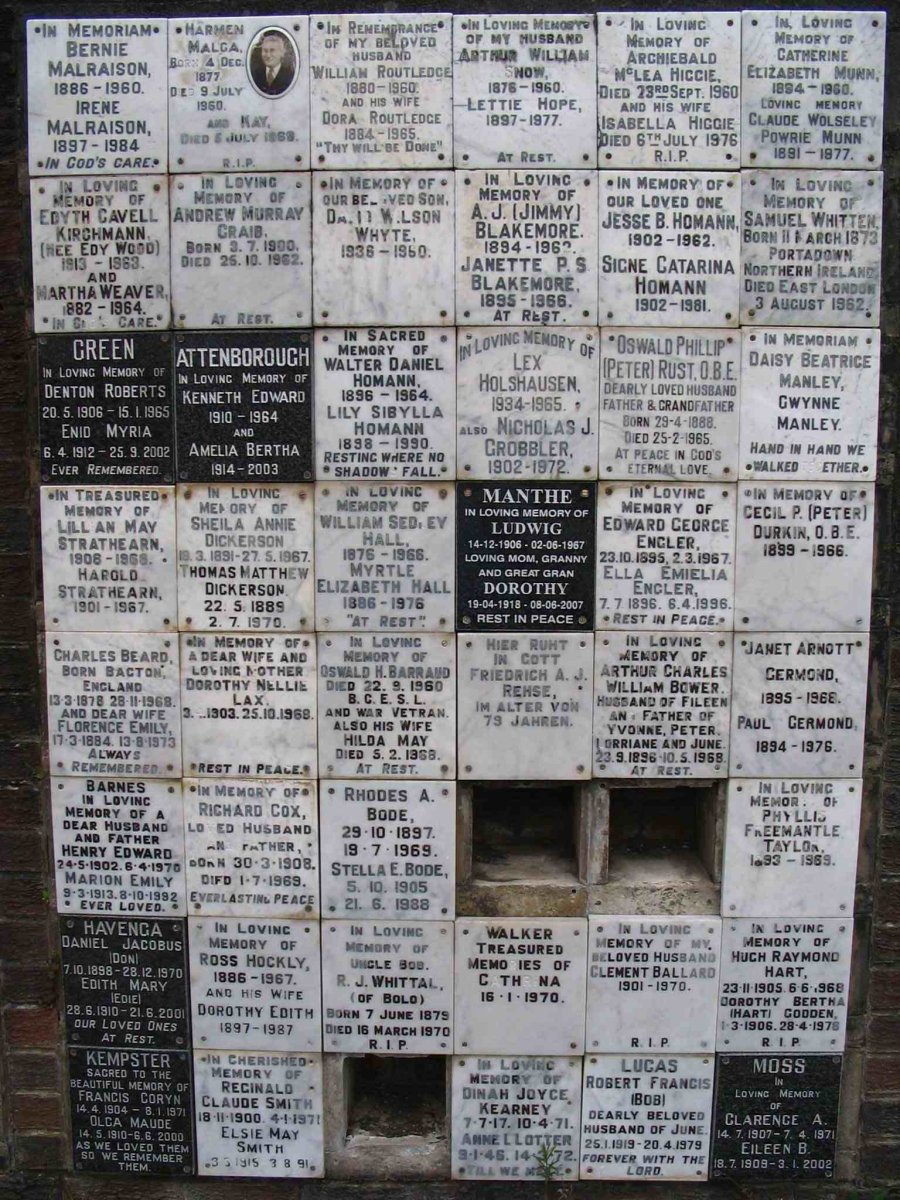 In Memoriam
Bernie
Malraison,
1886 - 1960.
Irene
Malraison,
1897 - 1984
In God's Care.
Harmen
Malga,
Born 4 Dec.
1877
Died 9 July
1960.
and Kay,
Died 5 July 1968.
R.I.P.
In Remembrance
of my beloved
husband
William Routledge
1880-1960.
and his wife
Dora Routledge
1884-1965.
"Thy will be Done"
In Loving Memory
of my husband
Arthur William
Snow,
1876-1960.
Lettie Hope,
1897-1977.
At Rest.
In Loving
Memory of
Archiebald
McLea Higgie,
Died 23rd Sept. 1960
and his wife
Isabella Higgie
Died 6th July 1976
R.I.P.
In Loving
Memory of
Catherine
Elizabeth Munn,
1894-1960.
Loving memory
Claude Wolseley
Powrie Munn
1891-1977.
In Loving
Memory of
Edyth Cavell
Kirchmann,
(nee Edy Wood)
1913 - 1963.
and
Martha Weaver,
1882 - 1964.
In Care.
In Loving
Memory of
Andrew Murray
Craib,
Born 3.7.1900,
Died 25.10.1962.
At Rest.
In Memory of
our beloved son,
Wilson
Whyte,
1936-1960.
In Loving
Memory of
A. J. (Jimmy)
Blakemore.
1894-1962.
Janette P. S
Blakemore,
1895-1966.
At Rest.
In Memory of
our loved one
Jesse B. Homann,
1902-1962.
Signe Catarina
Homann
1902-1981.
In Loving
Memory of
Samuel Whitten,
Born 11 March 1873
Portadown
Northern Ireland,
Died East London
3 August 1962.
Green
In Loving Memory of
Denton Roberts
20.5.1906 - 15.1.1965
Enid Myria
6.4.1912 - 25.9.2002
Ever Remembered.
Attenborough
In Loving Memory of
Kenneth Edward
1910 - 1964
and
Amelia Bertha
1914 - 2003
In Sacred
Memory of
Walter Daniel
Homann,
1896 - 1964.
Lily Sibylla
Homann
1898 - 1990.
Resting where no
shadows fall.
In Loving Memory of
Lex
Holshausen,
1934-1965.
also Nicholas J.
Grobbler,
1902-1972.
Oswald Phillip
(Peter) Rust, O.B.E.
Dearly loved husband
father & grandfather
Born 29-4-1888.
Died 25-2-1965.
At peace in God's
eternal love.
In Memoriam
Daisy Beatrice
Manley,
Gwynne
Manley.
Hand in hand we
walked
In Treasured
Memory of
Lillian May
Strathearn,
1908-1968.
Harold
Strathearn,
1901-1967.
In Loving
Memory of
Sheila Annie
Dickerson
18.3.1891-27.5.1967.
Thomas Matthew
Dickerson.
22.5.1889
2.7.1970.
In Loving
Memory of
William Sedley
Hall,
1876-1966.
Myrtle
Elizabeth Hall
1886-1976
"At Rest".
MANTHE
IN LOVING MEMORY OF
LUDWIG
14-12-1906 - 02-06-1967
LOVING MOM, GRANNY
AND GREAT GRAN
DOROTHY
19-04-1918 - 08-06-2007
REST IN PEACE
In Loving
Memory of
Edward George
Engler,
23.10.1895, 2.3.1967.
Ella Emielia
Engler,
7.7.1896. 6.4.1996.
Rest in Peace.
In Memory of
Cecil P. (Peter)
Durkin, O.B.E.
1899-1966.
Charles Beard,
Born Bacton,
England
13-3-1878 28-11-1968.
and dear wife
Florence Emily,
17.3.1884. 13.8.1973
Always
Remembered.
In Memory of
a dear wife and
loving mother
Dorothy Nellie
Lax.
1903. 25.10.1968.
Rest in Peace.
In Loving
Memory of
Oswald H. Barraud
Died 22.9.1960
B.C.E.S.L.
and War Vetran.
Also his wife
Hilda May
Died 5.2.1968.
At Rest.
Hier Ruht
in Gott
Friedrich A. J.
Rehse,
im Alter von
79 Jahren.
In Loving
Memory of
Arthur Charles
William Bower.
Husband of Fileen
and Father of
Yvonne, Peter.
Lorriane and June.
23.9.1896-10.5.1968.
At Rest.
Janet Arnott
Germond,
1895-1968.
Paul Germond,
1894-1976.
Barnes
In Loving
Memory of a
dear husband
and father
Henry Edward
24.5.1902. 6.4.1970
Marion Emily
9.3.1913. 8.10.1992
Ever Loved.
In Memory of
Richard Cox,
Loved husband
father,
Born 30.3.1908.
Died 1.7.1969.
Everlasting Peace
Rhodes A.
Bode,
29.10.1897.
19.7.1969.
Stella E. Bode,
5.10.1905
21.6.1988
In Loving
Memory of
Phyllis
Freemantle
Taylor,
1893 - 1969.
Havenga
Daniel Jacobus
(Don)
7.10.1898 - 28.12.1970
Edith Mary
(Edie)
28.6.1910 - 21.6.2001
Our loved ones
At Rest.
In Loving
Memory of
Ross Hockly,
1886-1967.
and his wife
Dorothy Edith
1897-1987
In Loving
Memory of
Uncle Bob.
R. J. Whittal,
(of Bolo)
Born 7 June 1879
Died 16 March 1970
R.I.P.
Walker
Treasured
Memories of
16.1.1970.
In Loving
Memory of my
beloved husband
Clement Ballard
1901-1970.
R.I.P.
In Loving
Memory of
Hugh Raymond
Hart,
23.11.1905. 6.6.1968
Dorothy Bertha
(Hart) Godden,
1.3.1906. 28.4.1978
R.I.P.
Kempster
Sacred to the
beautiful memory of
Francis Coryn
14.4.1904 - 8.1.1971
Olga Maude
14.5.1910-6.6.2000
As we loved them
so we remember
them.
In Cherished
Memory of
Reginald
Claude Smith
18.11.1900. 4.1.1971
Elsie May
Smith
3.5.1915 3.8.91
In Loving
Memory of
Dinah Joyce
Kearney
7.7.17. 10.4.71.
Anne L Lotter
Till we meet.
Lucas
Robert Francis
(Bob)
Dearly beloved
husband of June.
25.1.1919-20.4.1979
Forever with the
Lord.
Moss
In Loving
Memory
of
Clarence A.
14.7.1907 - 7.4.1971
Eileen B.
18.7.1909 - 3.1.2002